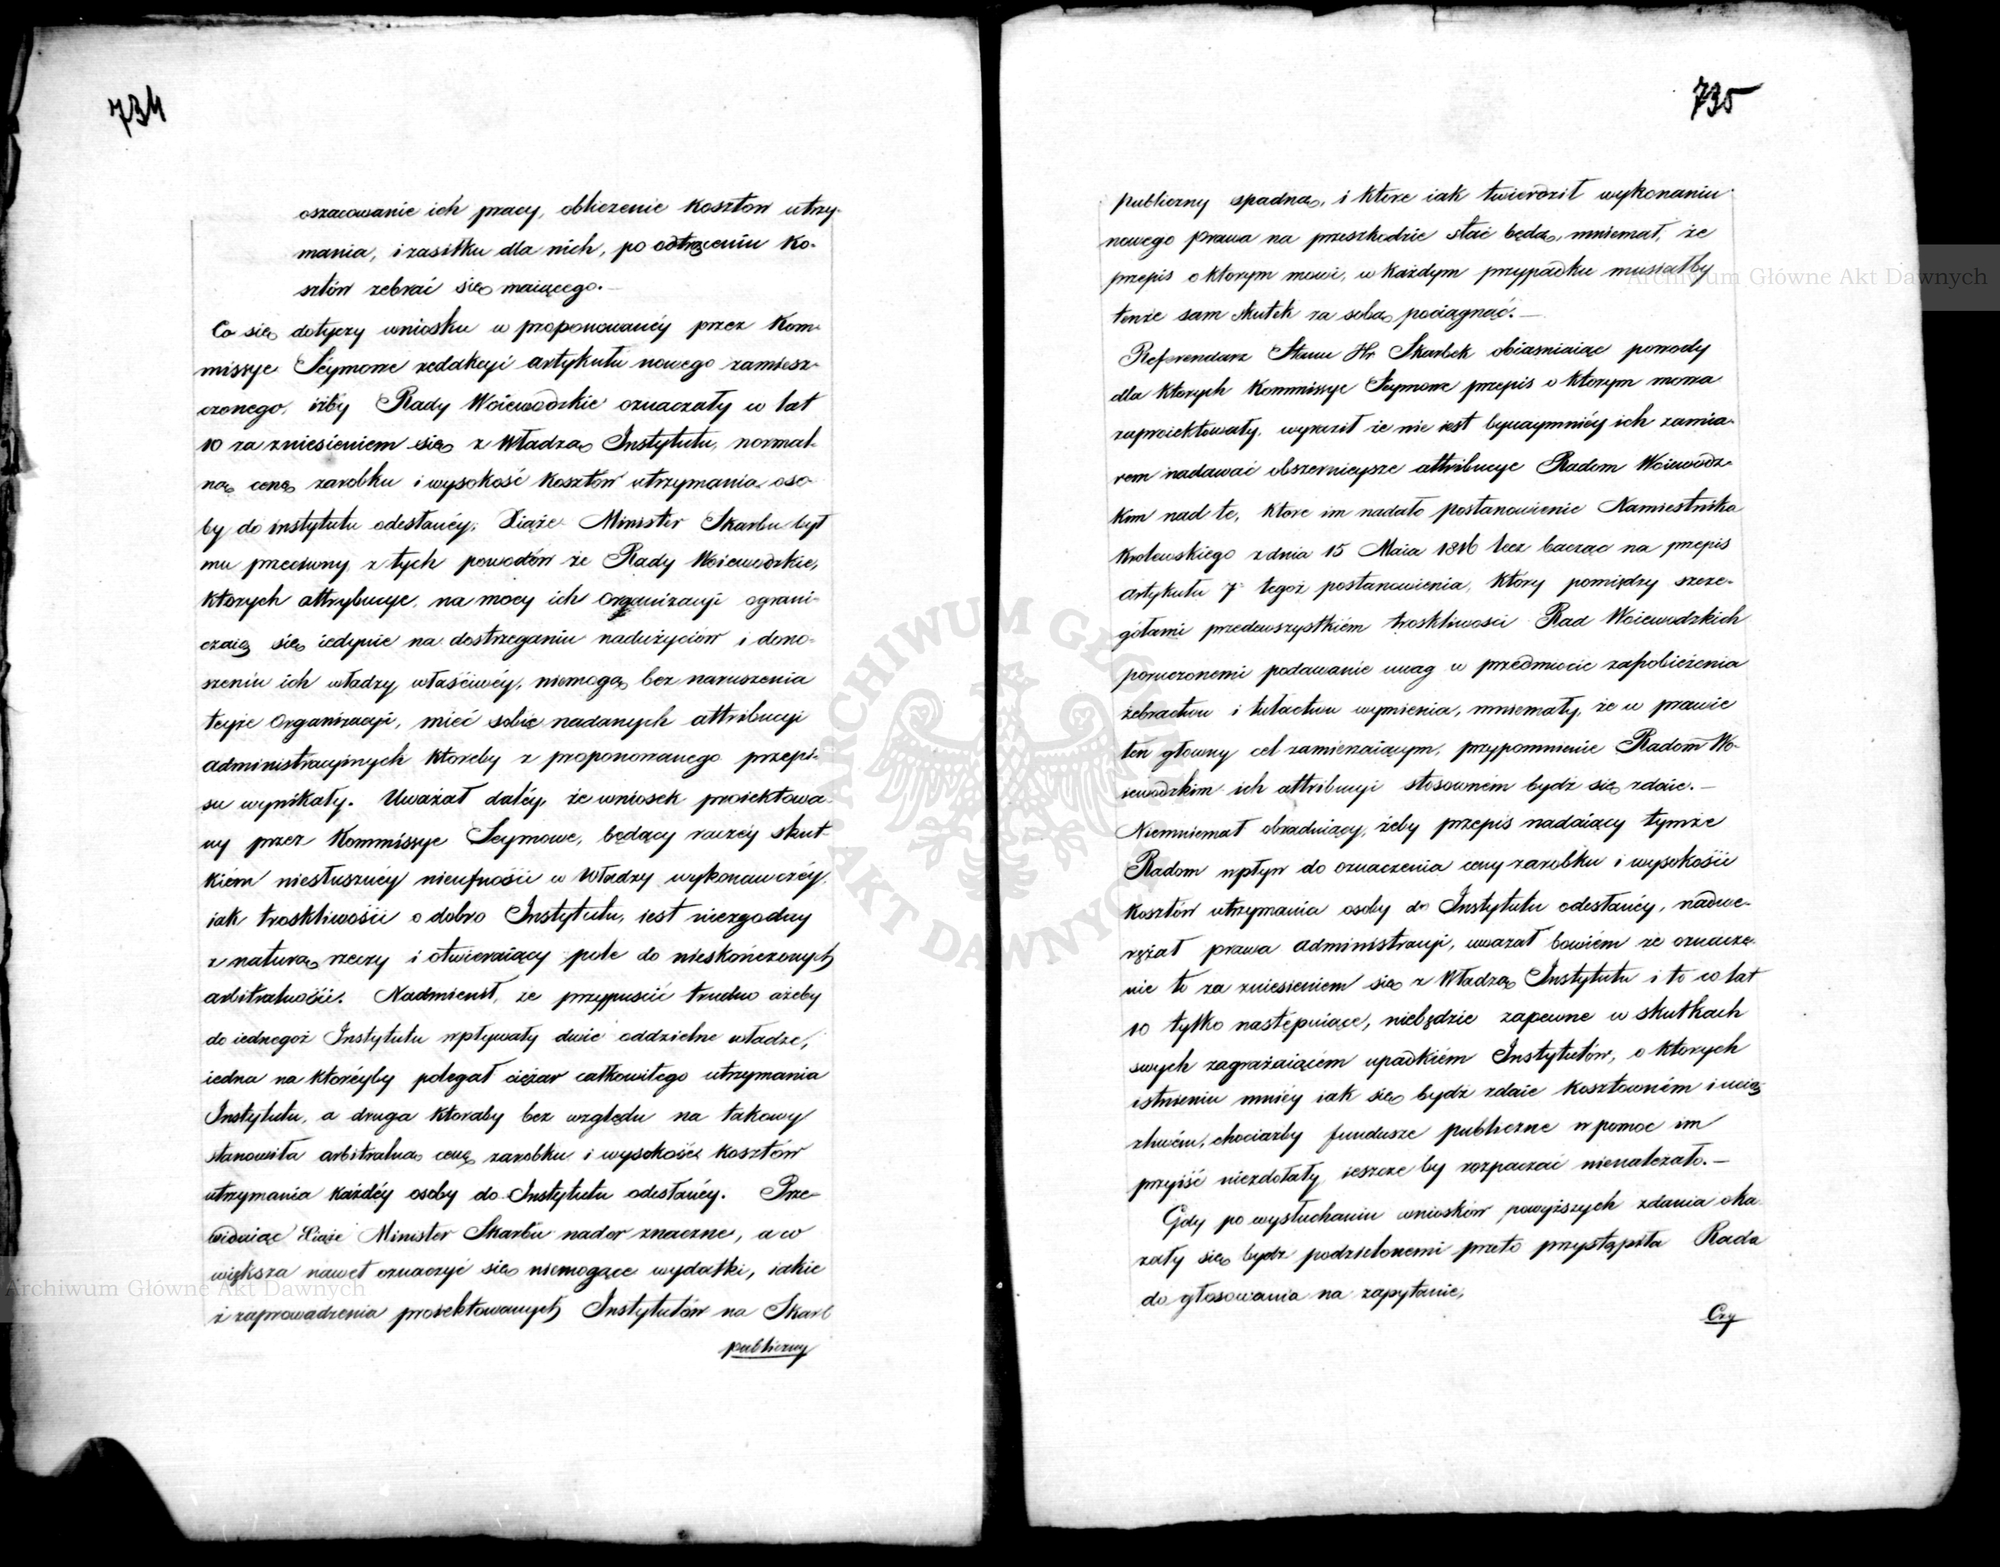 734
oszacowanie ich pracy, obliczenie kosztów utrzy-
mania, i zasiłku dla nich, po odtrąceniu ko-
sztów zebrać się maiącego.—
Co się dotyczy wniosku w proponowanéy przez Kom-
missye Seymowe redakcyi artykułu nowego zamiesz-
czonego, iżby Rady Woiewodzkie oznaczały co lat
10 za zniesieniem się z Władzą Instytutu, normal-
ną cenę zarobku i wysokość kosztów utrzymania oso-
by do instytutu odesłanéy; Xiąże Minister Skarbu był
mu przeciwny z tych powodów że Rady Woiewodzkie,
których attrybucye, na mocy ich Organizacyi ograni-
czaią się iedynie na dostrzeganiu nadużyciów i dono-
szeniu ich władzy właściwéy, niemogą bez naruszenia
teyże Organizacyi, mieć sobie nadanych attribucyi
administracyinych któreby z proponowanego przepi-
su wynikały. Uważał daléy, że wniosek proiektowa-
ny przez Kommissye Seymowe, będący raczéy skut-
kiém niesłusznéy nieufności w Władzy wykonawczéy,
iak troskliwości o dobro Instytutu, iest niezgodny
z naturą rzeczy i otwieraiący pole do nieskończonych
arbitralności. Nadmienił, że przypuścić trudno ażeby
do iednegoż Instytutu wpływały dwie oddzielne władze,
iedna na któréyby polegał ciężar całkowitego utrzymania
Instytutu, a druga któraby bez względu na takowy
stanowiła arbitralną cenę zarobku i wysokość kosztów
utrzymania każdéy osoby do Instytutu odesłanéy. Prze-
widuiąc Xiąże Minister Skarbu nader znaczne, a co
większa nawet oznaczyć się niemogące wydatki, iakie
z zaprowadzenia proiektowanych Instytutów na Skarb
publiczny
735
publiczny spadną, i które iak twierdził wykonaniu
nowego prawa na przeszkodzie stać będą, mniemał, że
przepis o którym mowi, w każdym przypadku musiałby
tenże sam skutek za sobą pociągnąć.—
Referendarz Stanu Hr. Skarbek obiaśniaiąc powody
dla których Kommissye Seymowe przepis o którym mowa
zaproiektowały, wyraził że nie iest bynaymniéy ich zamia-
rem nadawać obszernieysze attribucye Radom Woiewodz-
kim nad te, które im nadało postanowienie Namiestnika
Krolewskiego z dnia 15 Maia 1816 lecz bacząc na przepis
artykułu 7 tegoż postanowienia, który pomiędzy szcze-
gółami przedewszystkiém troskliwości Rad Woiewodzkich
poruczonemi podawanie uwag w przedmiocie zapobieżenia
żebractwu i tułactwu wymienia, mniemały, że w prawie
ten głowny cel zamierzaiącym, przypomnienie Radom Wo-
iewodzkim ich attribucyi stosowném bydź się zdaie.—
Niemniemał obradniący, żeby przepis nadaiący tymże
Radom wpływ do oznaczenia ceny zarobku i wysokości
kosztów utrzymania osoby do Instytutu odesłanéy, nadwe-
rężał prawa administracyi, uważał bowiém że oznacze-
nie to za zniesieniem się z Władzą Instytutu i to co lat
10 tylko następuiące, niebędzie zapewne w skutkach
swych zagrażaiącém upadkiém Instytutów, o których
istnieniu mniéy iak się bydź zdaie kosztowném i ucią-
żliwém, chociażby fundusze publiczne w pomoc im
przyiść niezdołały, ieszcze by rozpaczać nienależało.—
Gdy po wysłuchaniu wniosków powyższych zdania oka-
zały się bydź podzielonemi przeto przystąpiła Rada
do głosowania na zapytanie,
Czy